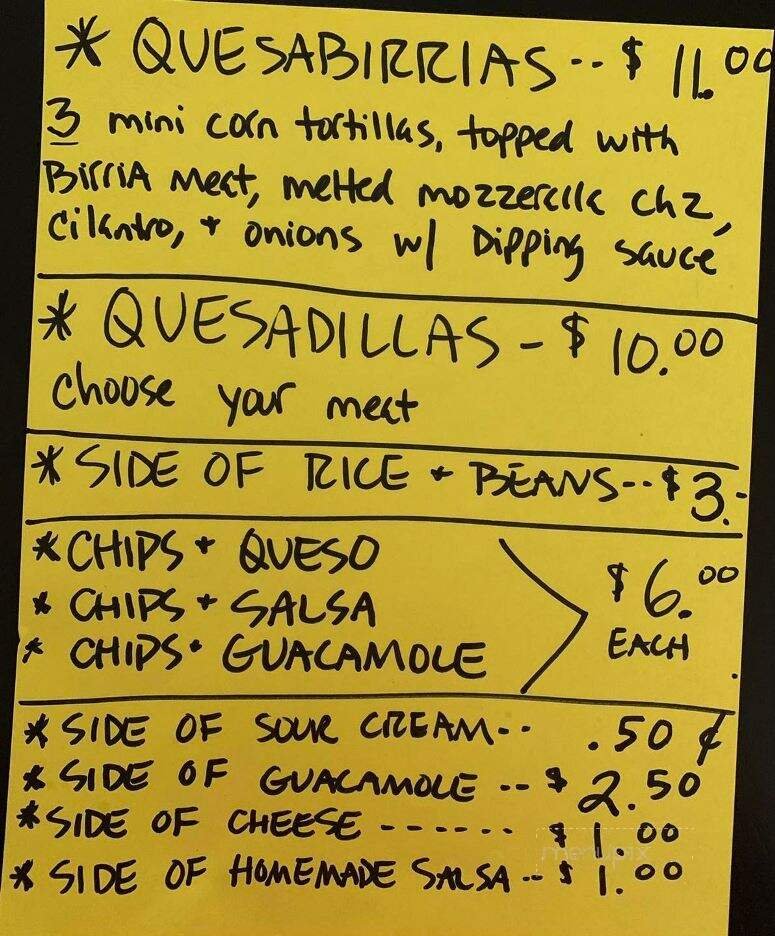 * QUESABIRRIAS -- $ 11.00
3 mini corn tortillas, topped with
BirriA Meat, melted mozzerella chz,
cilantro, + onions w/ Dipping sauce
* QUESADILLAS - $ 10.00
choose your meat
* SIDE OF RICE + BEANS -- $3.-
* CHIPS + QUESO
* CHIPS + SALSA
* CHIPS + GUACAMOLE
$6.00
EACH
* SIDE OF SOUR CREAM -- .50 ¢
* SIDE OF GUACAMOLE -- $ 2.50
* SIDE OF CHEESE ------- $ 1.00
* SIDE OF HOMEMADE SALSA -- $ 1.00
menupix